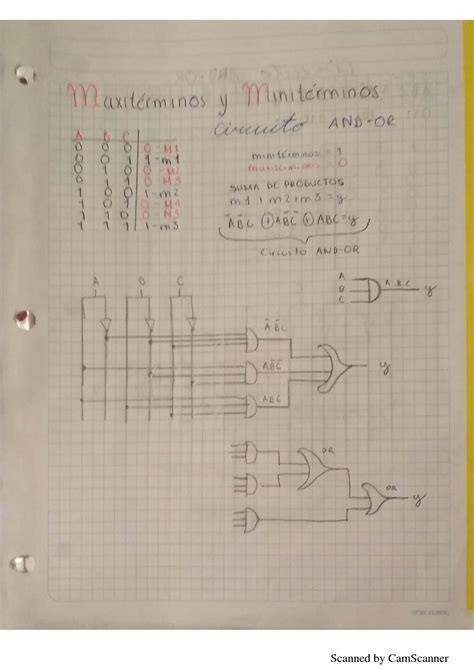 Maxitérminos y Minitérminos
Circuito AND-OR
A B C
0 0 0 0-M1
0 0 1 1-m1
0 1 0 0-M2
0 1 1 0-M3
1 0 0 1-m2
1 0 1 0-M4
1 1 0 0-M5
1 1 1 1-m3
minitérminos = 1
maxitérminos = 0
SUMA DE PRODUCTOS
m1 + m2 + m3 = y
A̅B̅C ⊕ AB̅C̅ ⊕ ABC = y
Circuito AND-OR
A
B
C
ABC
y
A B C
A̅B̅C
AB̅C̅
ABC
y
OR
OR
y
Scanned by CamScanner